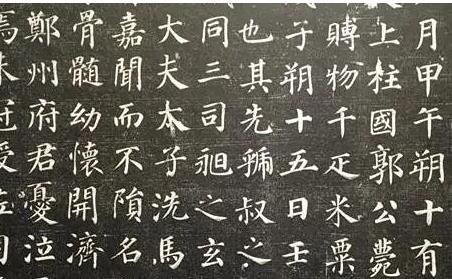 月甲午朔十有
上柱國郭公薨
賻物千疋米粟
子朔十五日壬
也其先虢叔之
同三司之玄
大夫太子洗馬
嘉聞而不隕名
骨髓幼懷開濟
鄭州府君憂泣